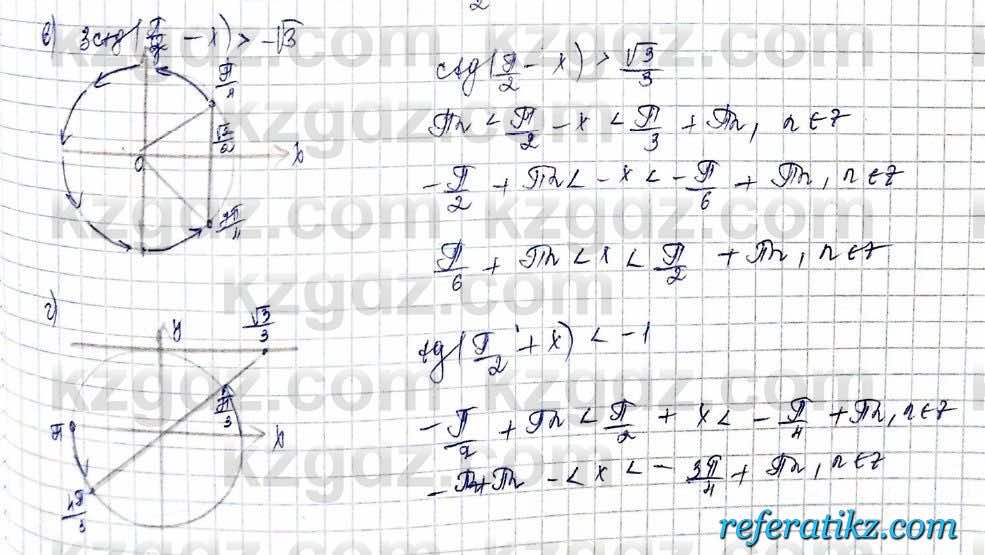 в) 3ctg(π/2 - x) > -√3
ctg(π/2 - x) > √3/3
πn < π/2 - x < π/3 + πn, n∈Z
-π/2 + πn < -x < -π/6 + πn, n∈Z
π/6 + πn < x < π/2 + πn, n∈Z
π/4
√3/2
0
x
7π/4
г)
√3/3
y
π/3
x
π
4π/3
tg(π/2 + x) < -1
-π/2 + πn < π/2 + x < -π/4 + πn, n∈Z
-π+πn - < x < - 3π/4 + πn, n∈Z
kzgdz.com
referatikz.com